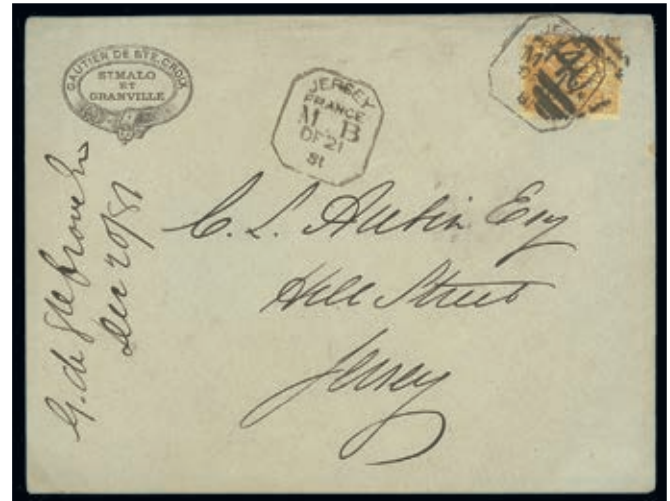 GAUTIER DE STE. CROIX
ST MALO
ET
GRANVILLE
JERSEY
FRANCE
M B
DE 21
81
JERSEY
G. de Ste Croix
Dec 20/81
C. L. Aubin Esq
Hill Street
Jersey